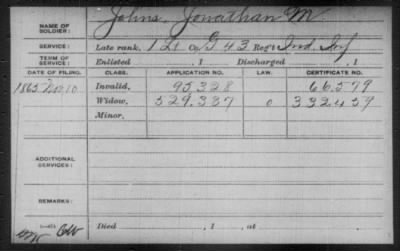 NAME OF SOLDIER: Johns, Jonathan M
SERVICE: Late rank, 1 Lt Co. G 43 Reg't Ind. Inf
TERM OF SERVICE: Enlisted , 1 Discharged , 1
DATE OF FILING. CLASS. APPLICATION NO. LAW. CERTIFICATE NO.
1865 Nov 10 Invalid, 95.328 66.579
Widow, 529.337 0 332.459
Minor,
ADDITIONAL SERVICES:
REMARKS:
Died , 1 , at